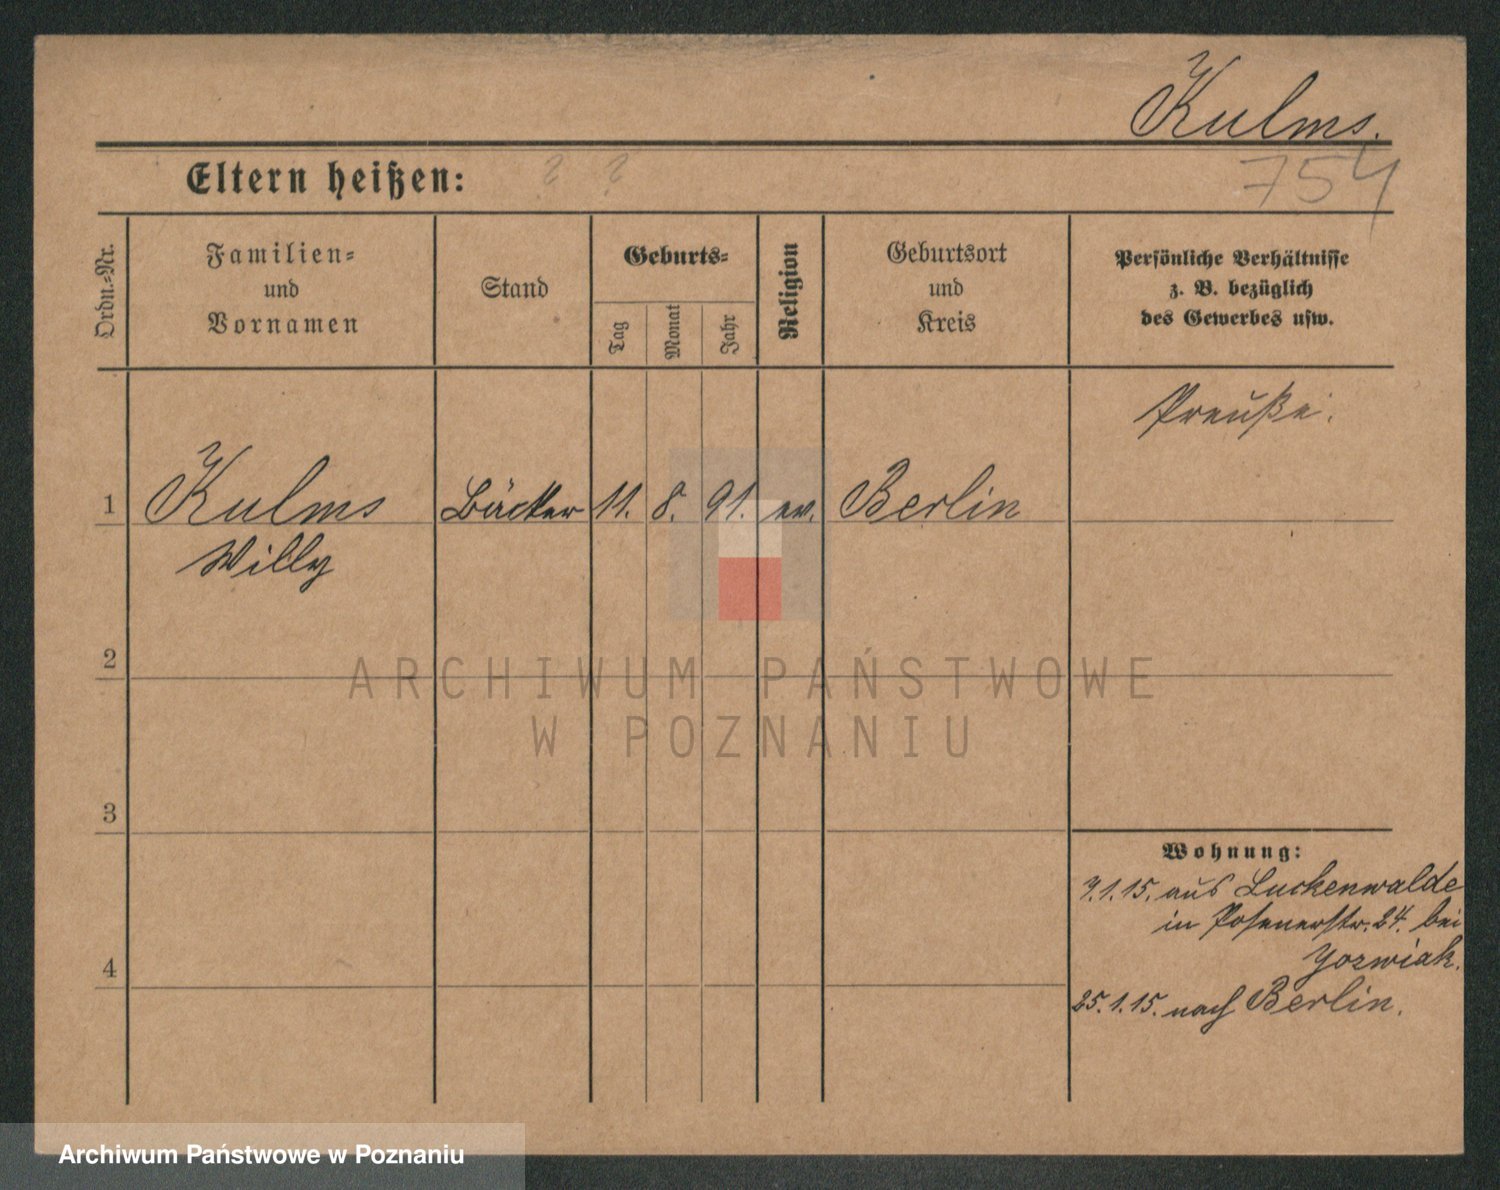 Kulms.
Eltern heißen: ? ?
754
Ordn.-Nr.
Familien-
und
Vornamen
Stand
Geburts-
Tag
Monat
Jahr
Religion
Geburtsort
und
Kreis
Persönliche Verhältnisse
z. B. bezüglich
des Gewerbes usw.
Preuße.
1 Kulms Bäcker 11. 8. 91. ev. Berlin
Willy
2
ARCHIWUM PAŃSTWOWE
W POZNANIU
3
Wohnung:
7.1.15. aus Luckenwalde
in Posenerstr. 24. bei
Yozwiak.
4
25.1.15. nach Berlin.
Archiwum Państwowe w Poznaniu